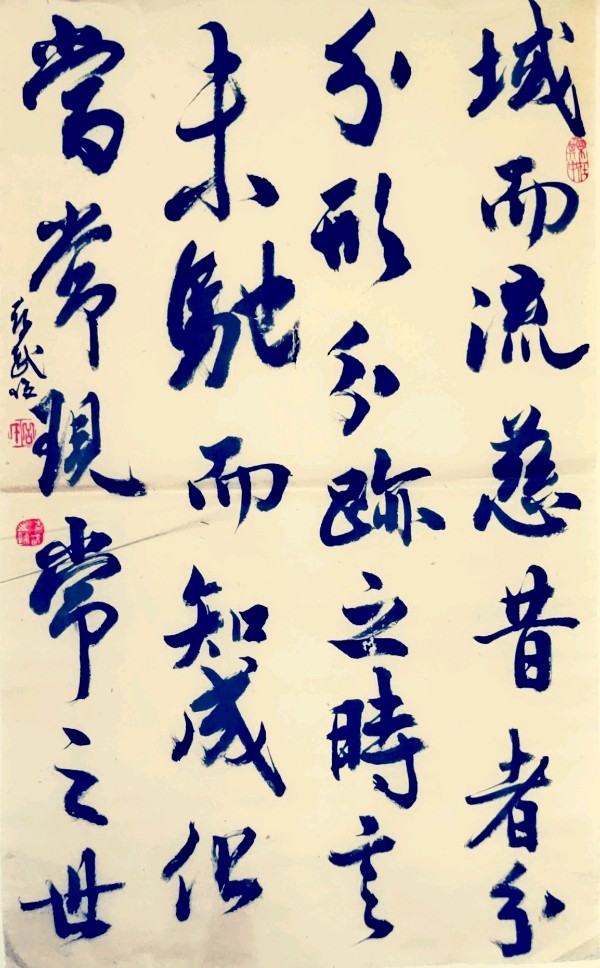 域而流慈昔者分
分形分跡之時言
未馳而知成
當常現常之世